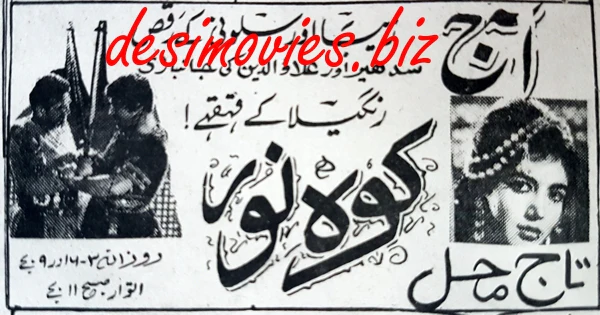 آج
نیما اور سلونی کے رقص
desimovies.biz
سدھیر اور علاؤالدین کی
رنگیلا کے قہقہے!
کوہ نور
تاج محل
روزانہ ۳-۶ اور ۹ بجے
اتوار صبح ۱۱ بجے